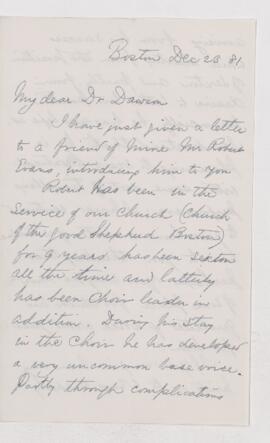 Boston Dec 23 81.
My dear Dr Dawson
I have just given a letter
to a friend of mine Mr Robert
Evans, introducing him to you
Robert has been in the
Service of our Church (Church
of the good Shepherd Boston)
for 9 years has been sexton
all the time and latterly
has been Choir leader in
addition. During his stay
in the Choir he has developed
a very uncommon base voice.
Partly through complications